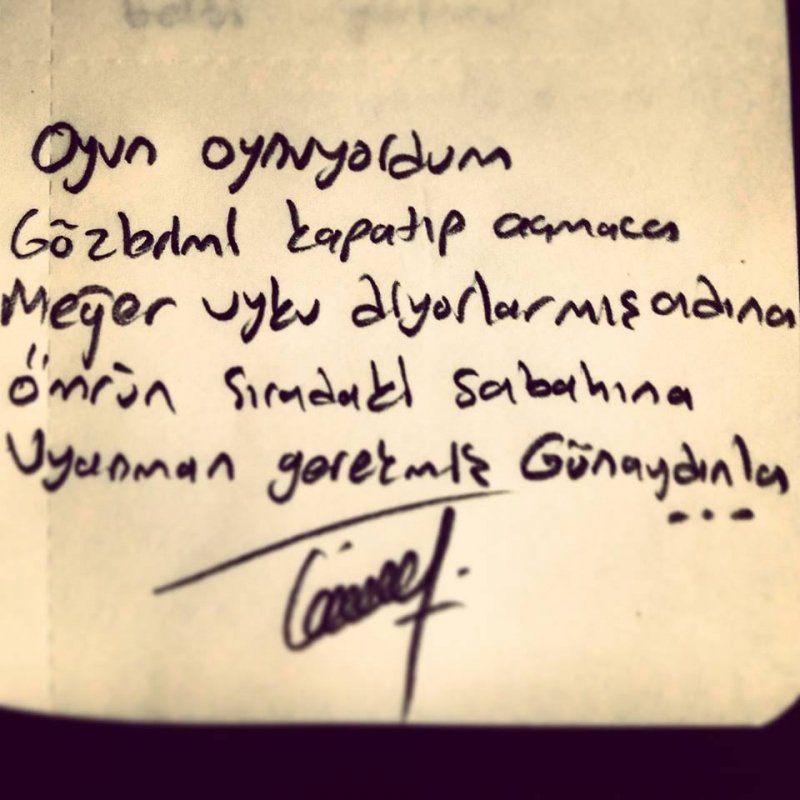 Oyun oynuyordum
Gözlerimi kapatıp açmaca
Meğer uyku diyorlarmış adına
Ömrün sıradaki sabahına
Uyanman gerekmiş Günaydınla
...